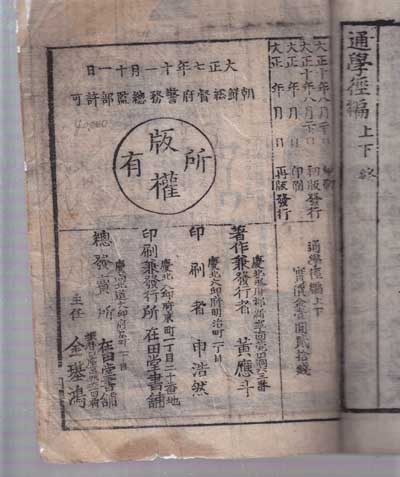 通學徑編上下 終
大正十年八月
大正十年八月
初版發行
大正 年 月 日
大正 年 月 日
再版發行
大正七年十一月十一日
朝鮮總督府警務總監部許可
版權所有
通學徑編上下
實價金壹圓貳拾錢
著作兼發行者 黃應斗
慶北大邱府明治町
印刷者 申浩然
慶北大邱府東町一丁目二十番地
印刷兼發行所 在田堂書舖
慶尚北道大邱府 町一丁目
總發賣所 在田堂書舖
主任 金璂鴻